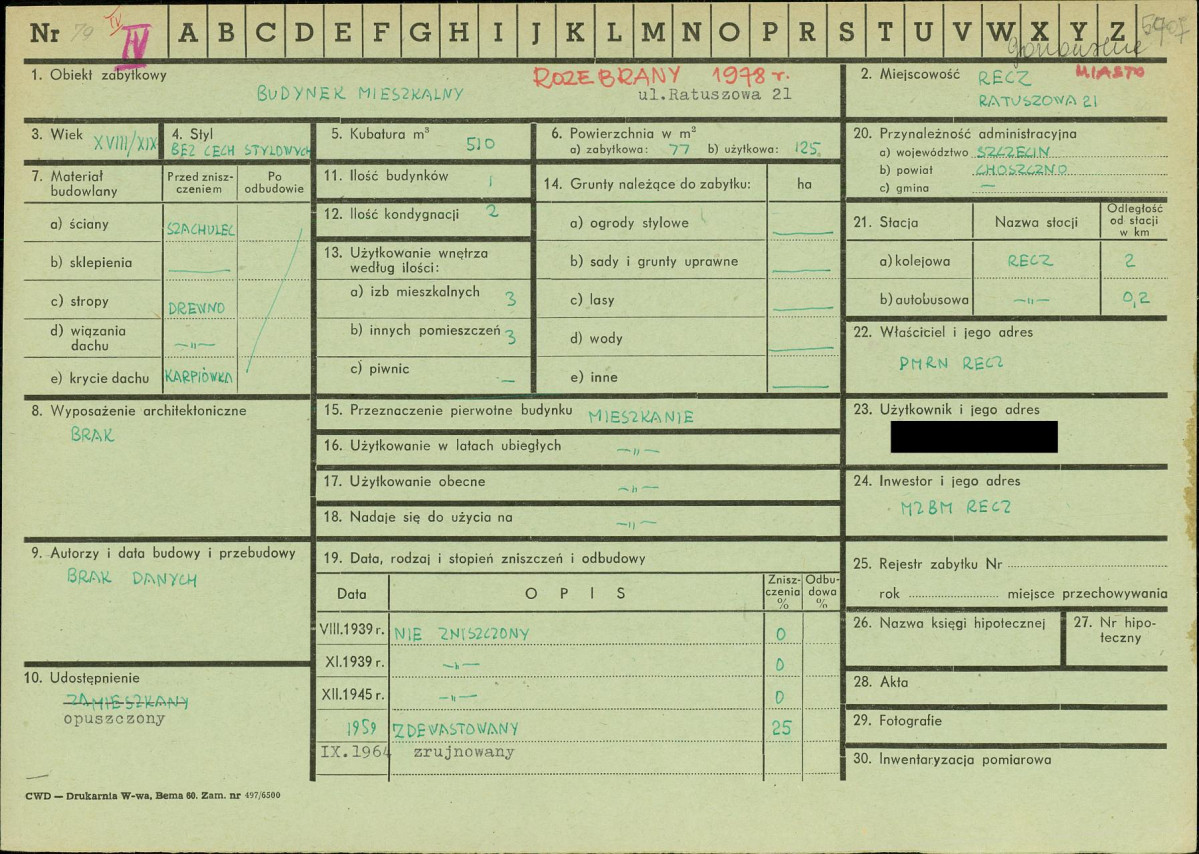 Nr 79 IV IV A B C D E F G H I J K L M N O P R S T U V W X Y Z
1. Obiekt zabytkowy
ROZEBRANY 1978 r.
BUDYNEK MIESZKALNY
ul.Ratuszowa 21
2. Miejscowość RECZ MIASTO
RATUSZOWA 21
3. Wiek XVIII/XIX
4. Styl
BEZ CECH STYLOWYCH
5. Kubatura m³ 510
6. Powierzchnia w m²
a) zabytkowa: 77 b) użytkowa: 125
20. Przynależność administracyjna
a) województwo SZCZECIN
b) powiat CHOSZCZNO
c) gmina —
7. Materiał budowlany
Przed znisz-
czeniem
Po
odbudowie
a) ściany SZACHULEC
b) sklepienia —
c) stropy DREWNO
d) wiązania
dachu —„—
e) krycie dachu KARPIÓWKA
11. Ilość budynków 1
12. Ilość kondygnacji 2
13. Użytkowanie wnętrza
według ilości:
a) izb mieszkalnych 3
b) innych pomieszczeń 3
c) piwnic —
14. Grunty należące do zabytku: ha
a) ogrody stylowe —
b) sady i grunty uprawne —
c) lasy —
d) wody —
e) inne —
21. Stacja
Nazwa stacji
Odległość
od stacji
w km
a) kolejowa RECZ 2
b) autobusowa —„— 0,2
22. Właściciel i jego adres
PMRN RECZ
8. Wyposażenie architektoniczne
BRAK
15. Przeznaczenie pierwotne budynku MIESZKANIE
16. Użytkowanie w latach ubiegłych —„—
17. Użytkowanie obecne —„—
18. Nadaje się do użycia na —„—
23. Użytkownik i jego adres
24. Inwestor i jego adres
MZBM RECZ
9. Autorzy i data budowy i przebudowy
BRAK DANYCH
19. Data, rodzaj i stopień zniszczeń i odbudowy
Data
O P I S
Znisz-
czenia
%
Odbu-
dowa
%
VIII.1939 r. NIE ZNISZCZONY 0
XI.1939 r. —„— 0
XII.1945 r. —„— 0
1959 ZDEWASTOWANY 25
IX.1964 zrujnowany
25. Rejestr zabytku Nr
rok miejsce przechowywania
26. Nazwa księgi hipotecznej
27. Nr hipo-
teczny
28. Akta
29. Fotografie
30. Inwentaryzacja pomiarowa
10. Udostępnienie
ZAMIESZKANY
opuszczony
CWD — Drukarnia W-wa, Bema 60. Zam. nr 497/6500